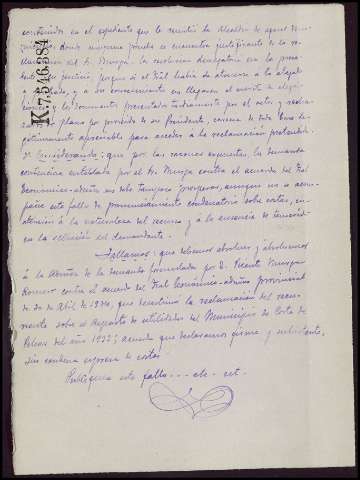 contenidos en el expediente que le remitió la Alcaldía de aquel
donde ninguna prueba se encuentra justificante de la
del Sr. Murga. La resolución denegatoria era la
de justicia, porque si el Tral había de atenerse a lo alegado
y a su conocimiento no llegaron el escrito de
y documentos presentados tardíamente por el actor, y
de plano por providencia de su Presidente, carecía de toda base
apreciable para acceder a la reclamación
Considerando: que por las razones expuestas, la demanda
contenciosa entablada por el Sr. Murga contra el acuerdo del Tral
Económico-advo no debe tampoco prosperar, aunque no se
este fallo de pronunciamiento condenatorio sobre costas, en
atención a la naturaleza del recurso y a la ausencia de temeridad
en la actuación del demandante.
Fallamos: que debemos absolver y absolvemos
á la Admon de la demanda formulada por D. Vicente Murga
Romero contra el acuerdo del Tral Económico-advo provincial
de 30 de Abril de 1934, que desestimó la reclamación del
sobre el Reparto de utilidades del Municipio de
del año 1932; acuerdo que declaramos firme y subsistente,
sin condena expresa de costas
Publíquese este fallo --- etc - etc.
K.7.546.384